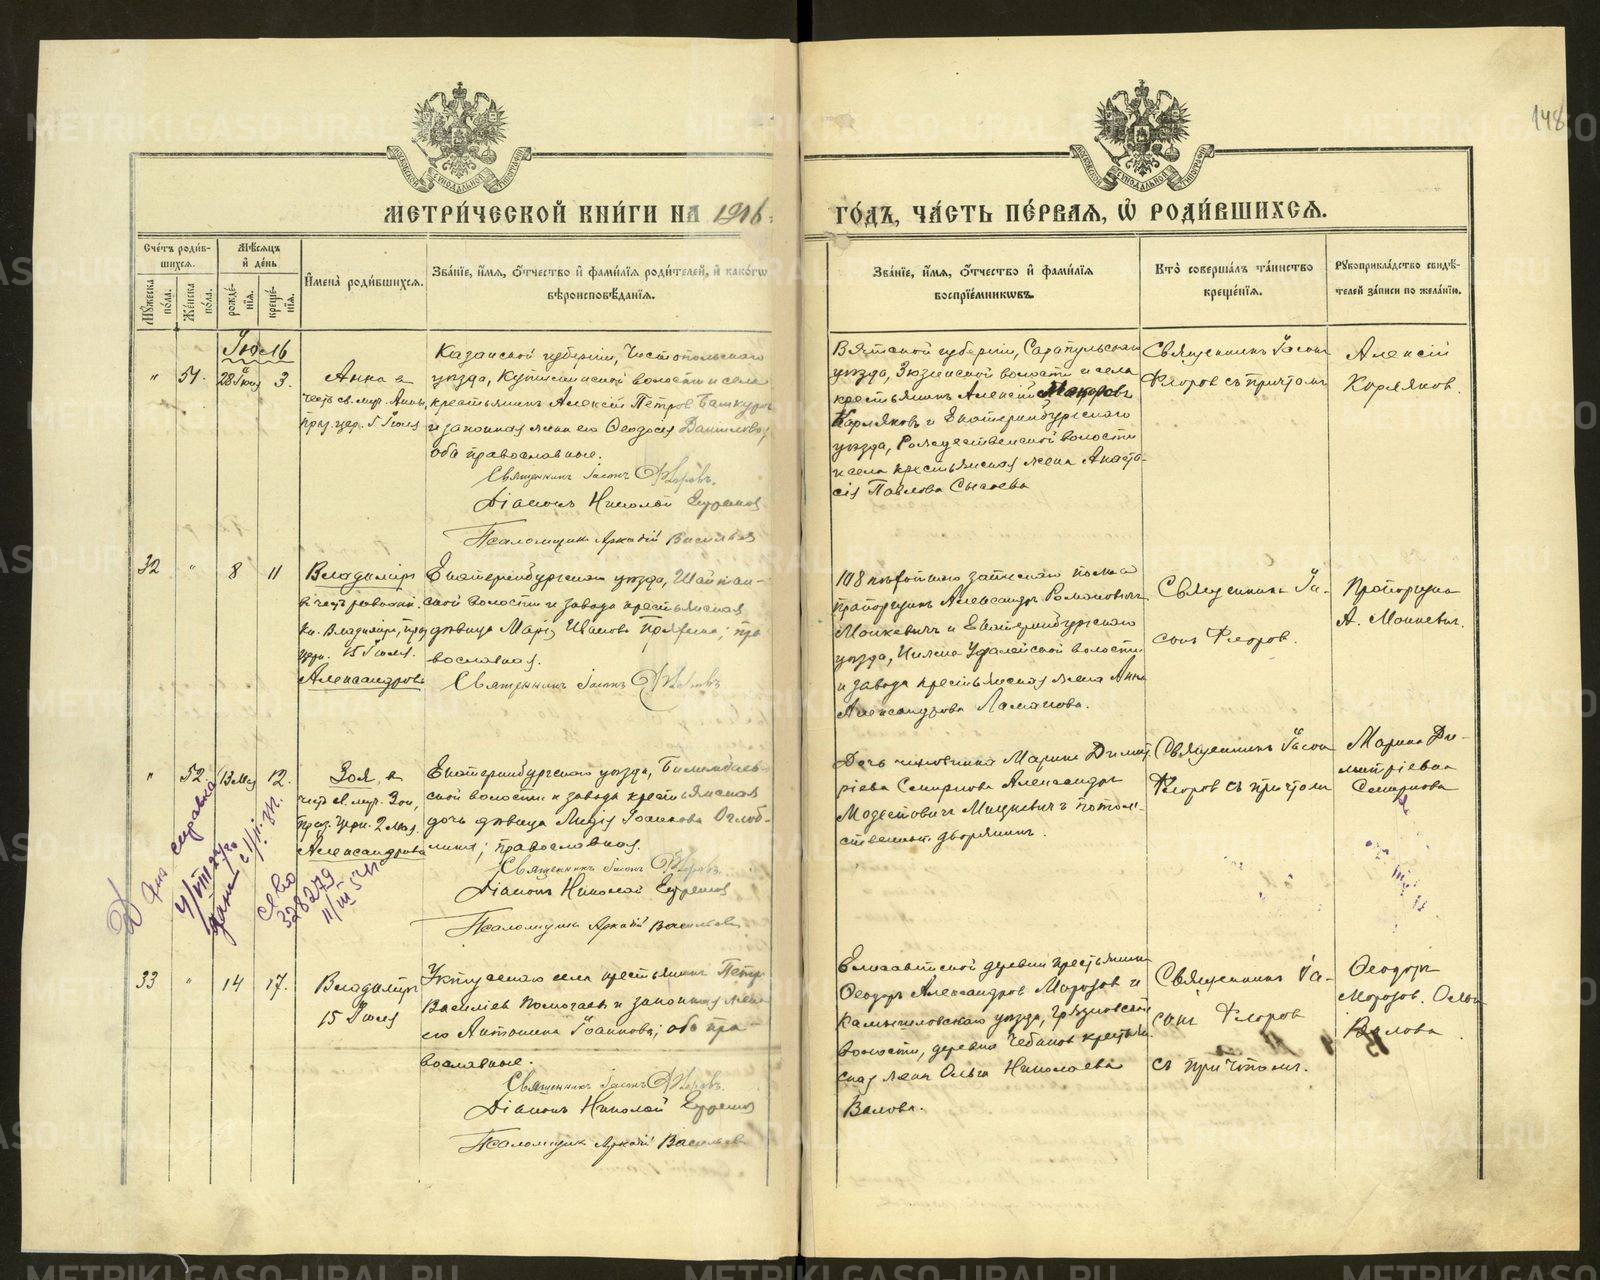 148
МЕТРИ́ЧЕСКОЙ КНИ́ГИ НА 1916
ГО́ДЪ, ЧА́СТЬ ПЕ́РВАЯ, Ѡ҆ РОДИ́ВШИХСЯ.
Сче́тъ роди́в-
шихся.
Мѣ́сяцъ
и҆ де́нь
Мꙋ́жеска по́ла.
Же́нска по́ла.
рожде́-
нїя.
креще́-
нїя.
И҆мена̀ роди́вшихся.
Зва́нїе, и҆́мя, ѻ҆́тчество и҆ фами́лїя роди́телей, и҆ како́гѡ
вѣроисповѣ́данїя.
Зва́нїе, и҆́мя, ѻ҆́тчество и҆ фами́лїя
воспрїе́мникѡвъ.
Кто̀ соверша́лъ та́инство
креще́нїя.
Рꙋкоприкла́дство свидѣ́-
телей за́писи по жела́нїю.
Іюль
" 51. 28 Іюня 3.
Анна в
честь св. муч. Анны,
праз. цер. 5 Іюля
Казанской губерніи, Чистопольскаго
уѣзда, волости и села
крестьянинъ Алексѣй Петровъ Башкуръ
и законная жена его Ѳеодосія Данилова,
оба православные.
Священникъ Іасонъ Флоровъ.
Діаконъ Николай
Псаломщикъ Аркадій Васильевъ
Вятской губерніи, Сарапульскаго
уѣзда, волости и села
крестьянинъ Алексій
Карляковъ и Екатеринбургскаго
уѣзда, Рождественской волости
и села крестьянская жена Анаста-
сія Павлова Сысоева
Священникъ Іасонъ
Флоровъ съ причтомъ
Алексій
Карляковъ.
32 " 8 11
Владиміръ
въ честь равноап.
кн. Владиміра, праз.
церк. 15 Іюля.
Александровъ
Екатеринбургскаго уѣзда, Шайтан-
ской волости и завода крестьянская
дѣвица Марія Иванова пра-
вославная.
Священникъ Іасонъ Флоровъ
108 пѣхотнаго запаснаго полка
прапорщикъ Александръ Романовичъ
Моцкевичъ и Екатеринбургскаго
уѣзда, Нижне Уфалейской волости
и завода крестьянская жена Анна
Александрова Ламанова.
Священникъ Іа-
сонъ Флоровъ.
Прапорщикъ
А. Моцкевичъ.
" 52. 13 Мая 12.
Зоя, в
честь св. муч. Зои,
праз. церк. 2 Мая.
Александрова
Екатеринбургскаго уѣзда, Билимбаев-
ской волости и завода крестьянская
дочь дѣвица Лидія Іоаннова Оглоб-
лина; православная.
Священникъ Іасонъ Флоровъ
Діаконъ Николай
Псаломщикъ Аркадій Васильевъ
Дочь чиновника Марина Димит-
ріева Смирнова Александръ
Модестовичъ Мицкевичъ потом-
ственный дворянинъ.
Священникъ Іасонъ
Флоровъ съ причтомъ
Марина Ди-
митріевна
Смирнова
справка
328279
33 " 14 17.
Владиміръ
15 Іюля
Уктусскаго села крестьянинъ Петръ
Василіевъ и законная жена
его Антонина Іоаннова; оба пра-
вославные.
Священникъ Іасонъ Флоровъ.
Діаконъ Николай
Псаломщикъ Аркадій Васильевъ
Елисаветской деревни крестьянинъ
Ѳеодоръ Александровъ Морозовъ и
Камышловскаго уѣзда, Грязновской
волости, деревни крестьян-
ская жена Ольга Николаева
Валова.
Священникъ Іа-
сонъ Флоровъ
съ причтомъ.
Ѳеодоръ
Морозовъ. Ольга
Валова